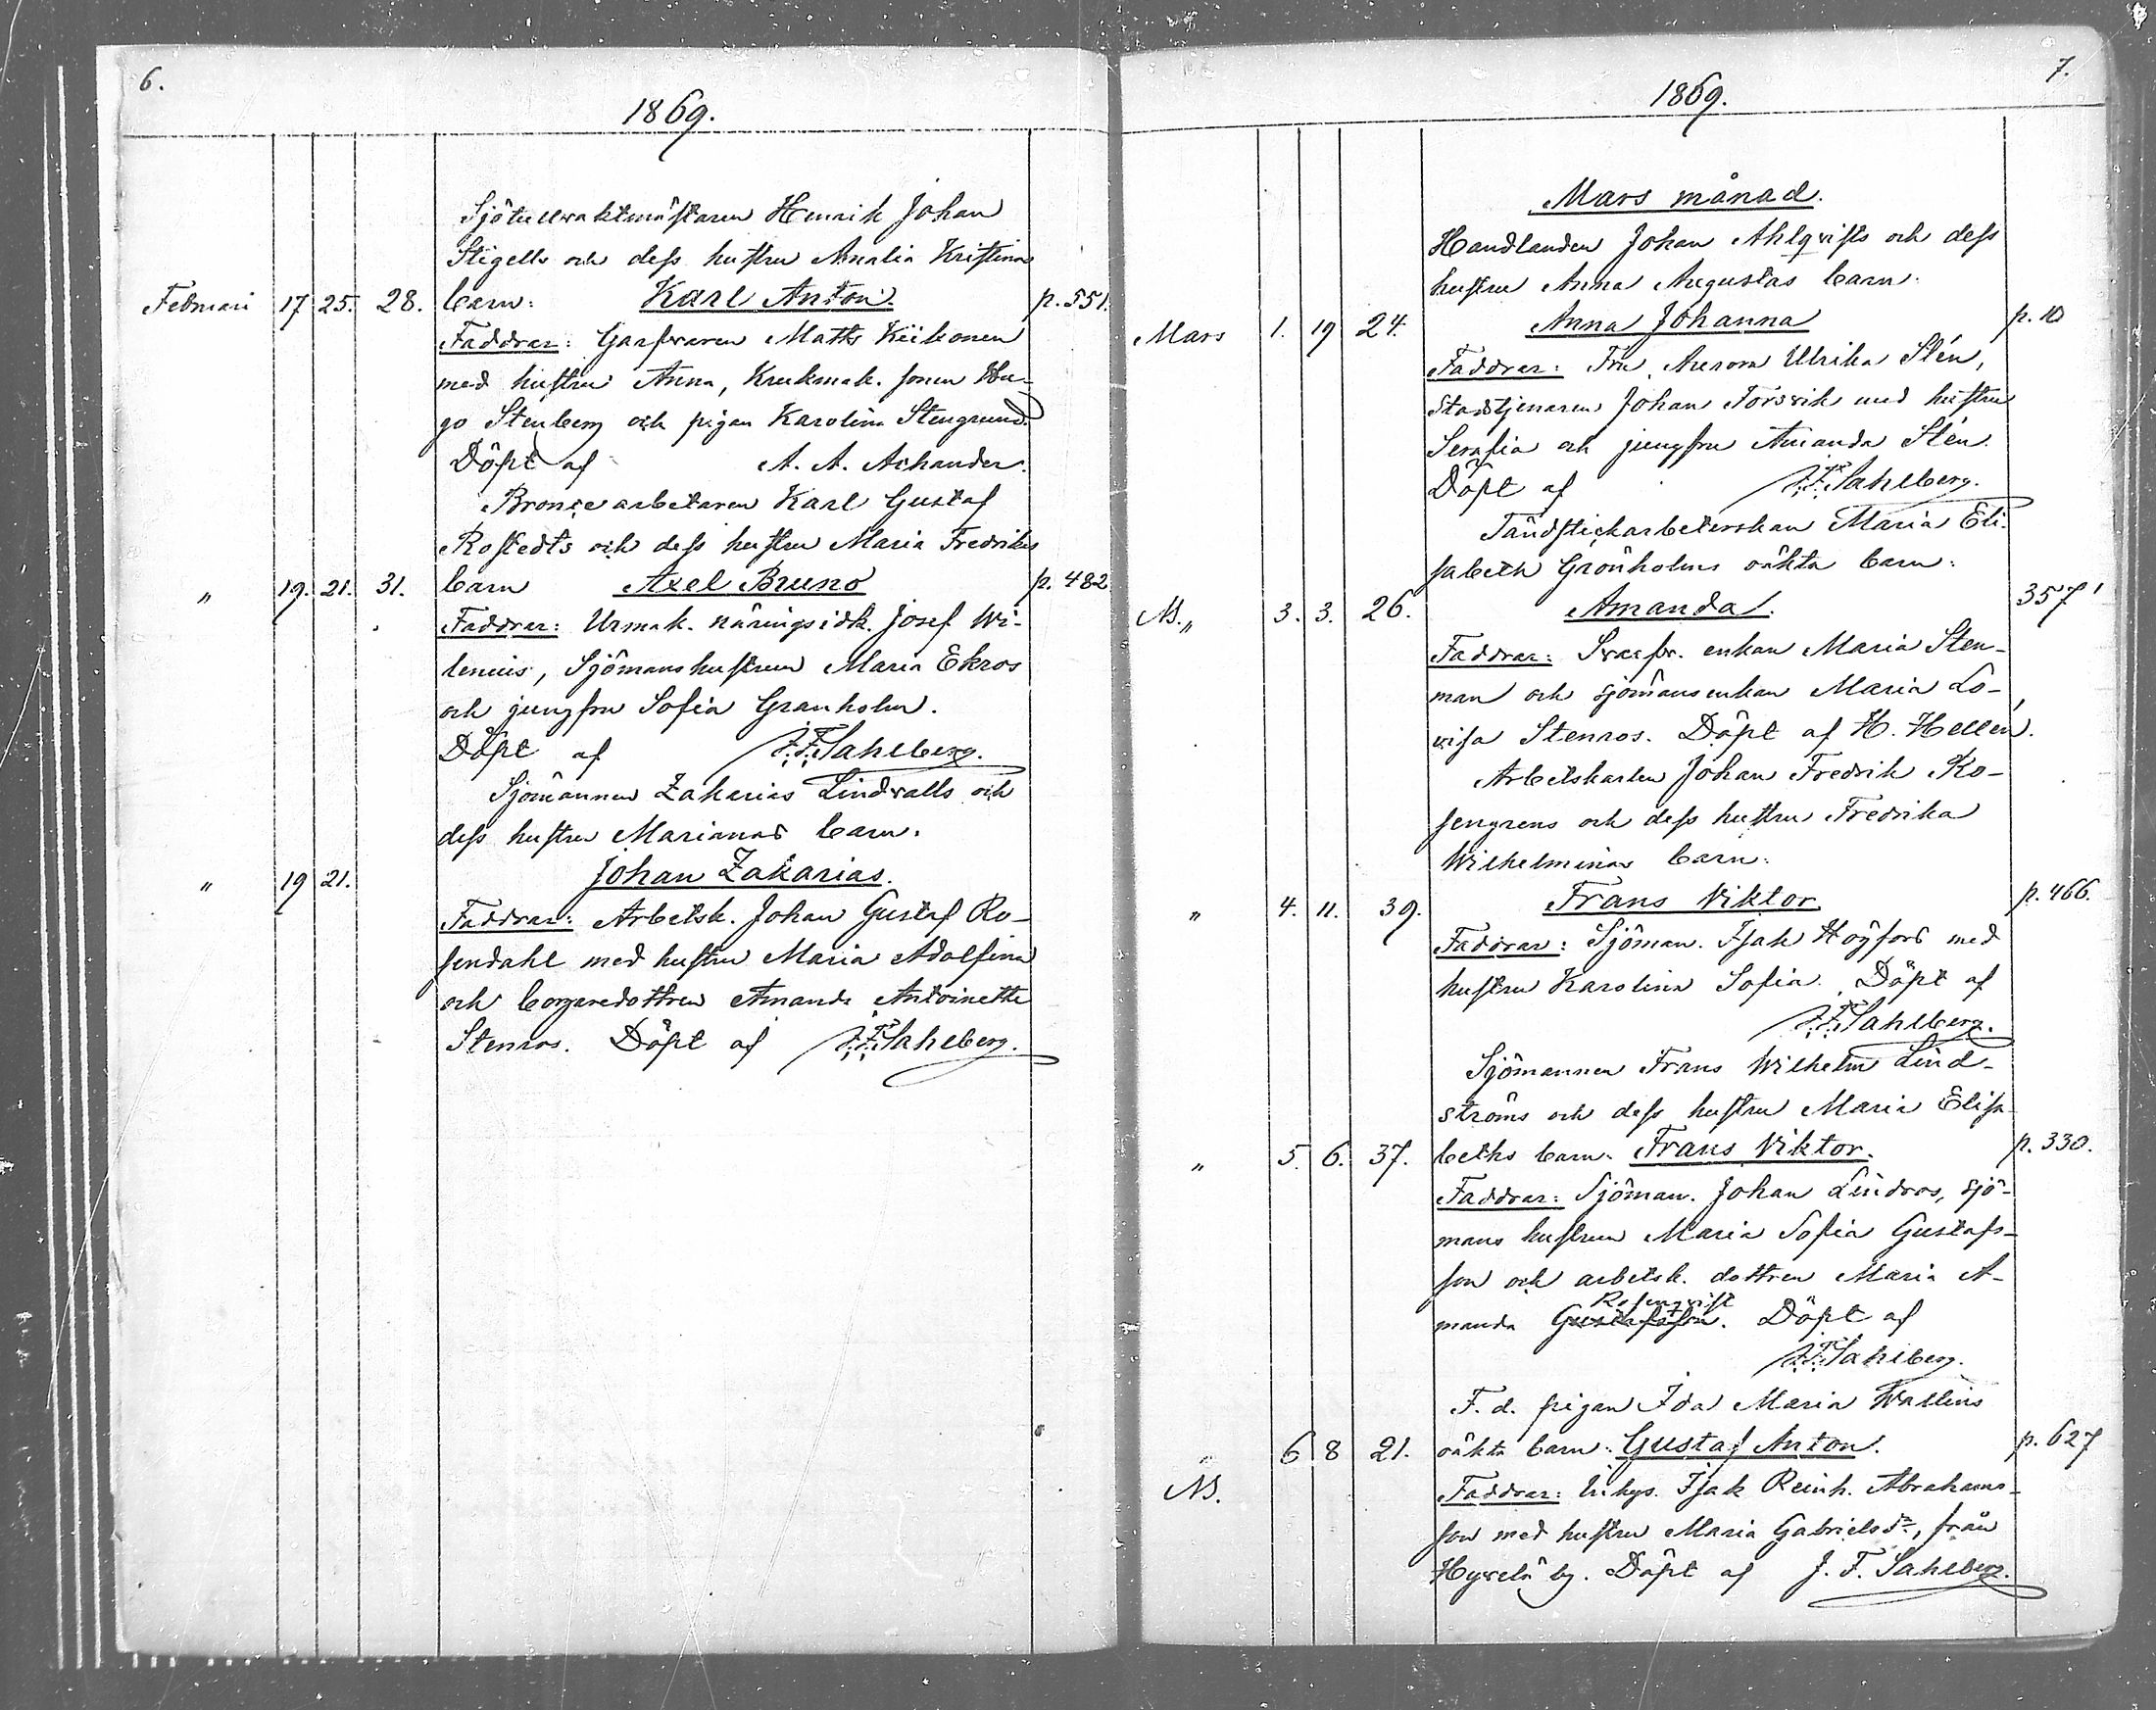 6.
1869.
Sjötullvaktmästaren Henrik Johan
Stigells och dess hustru Amalia Kristinas
Februari 17 25. 28. barn: Karl Anton. p. 551.
Faddrar: Garfvaren Matts Kiikonen
med hustru Anna, Krukmak. sonen Hu-
go Stenberg och pigan Karolina Stengrund.
Döpt af A. A. Achander.
Bronce arbetaren Karl Gustaf
Rostedts och dess hustru Maria Fredrikas
" 19. 21. 31. barn Axel Bruno p. 482
Faddrar: Urmak. näringsidk. Josef Wi-
lenius, Sjömanshustrun Maria Ekros
och jungfru Sofia Granholm.
Döpt af J. F. Sahlberg.
Sjömannen Zakarias Lindvalls och
dess hustru Marianas barn.
" 19 21. Johan Zakarias.
Faddrar: Arbetsk. Johan Gustaf Ro-
sendahl med hustru Maria Adolfina
och borgaredottren Amanda Antoinette
Stenros. Döpt af J. F. Sahlberg.
7.
1869.
Mars månad.
Handlanden Johan Ahlqvists och dess
hustru Anna Augustas barn:
Mars 1. 19 24. Anna Johanna p. 10
Faddrar: Fru Aurora Ulrika Stén,
Stadstjenaren Johan Forsvik med hustru
Serafia och jungfru Amanda Stén.
Döpt af J. F. Sahlberg.
Tändstickarbeterskan Maria Eli-
sabeth Grönholms oäkta barn:
N. " 3. 3. 26. Amanda. 357
Faddrar: Svarfv. enkan Maria Sten-
man och sjömansenkan Maria Lo-
visa Stenros. Döpt af H. Hellén.
Arbetskarlen Johan Fredrik Ro-
sengrens och dess hustru Fredrika
Wilhelminas barn:
" 4. 11. 39. Frans Viktor. p. 466.
Faddrar: Sjöman. Isak Högfors med
hustru Karolina Sofia. Döpt af
J. F. Sahlberg.
Sjömannen Frans Wilhelm Lind-
ströms och dess hustru Maria Elisa-
" 5. 6. 37. beths barn: Frans Viktor. p. 330.
Faddrar: Sjöman. Johan Lindros, sjö-
mans hustrun Maria Sofia Gustafs-
son och arbetsk. dottren Maria A-
Rosenqvist
manda Gustafsson. Döpt af
J. F. Sahlberg.
F. d. pigan Ida Maria Wallins
" 6 8 21. oäkta barn: Gustaf Anton. p. 627
N. Faddrar: Inhys. Isak Reinh. Abrahams-
son med hustru Maria Gabrielsdr, från
Hyvelä by. Döpt af J. F. Sahlberg.